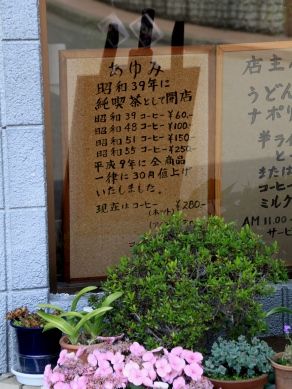 あゆみ
昭和39年に
純喫茶として開店
昭和39コーヒー ¥60-
昭和48コーヒー ¥100-
昭和51コーヒー ¥150-
昭和55コーヒー ¥250-
平成9年に全商品
一律に30円値上げ
いたしました。
現在はコーヒー ¥280-
(ホット)
店主
うどん
ナポリ
半ライ
と
または
コーヒ
ミルク
AM 11.00
サービ